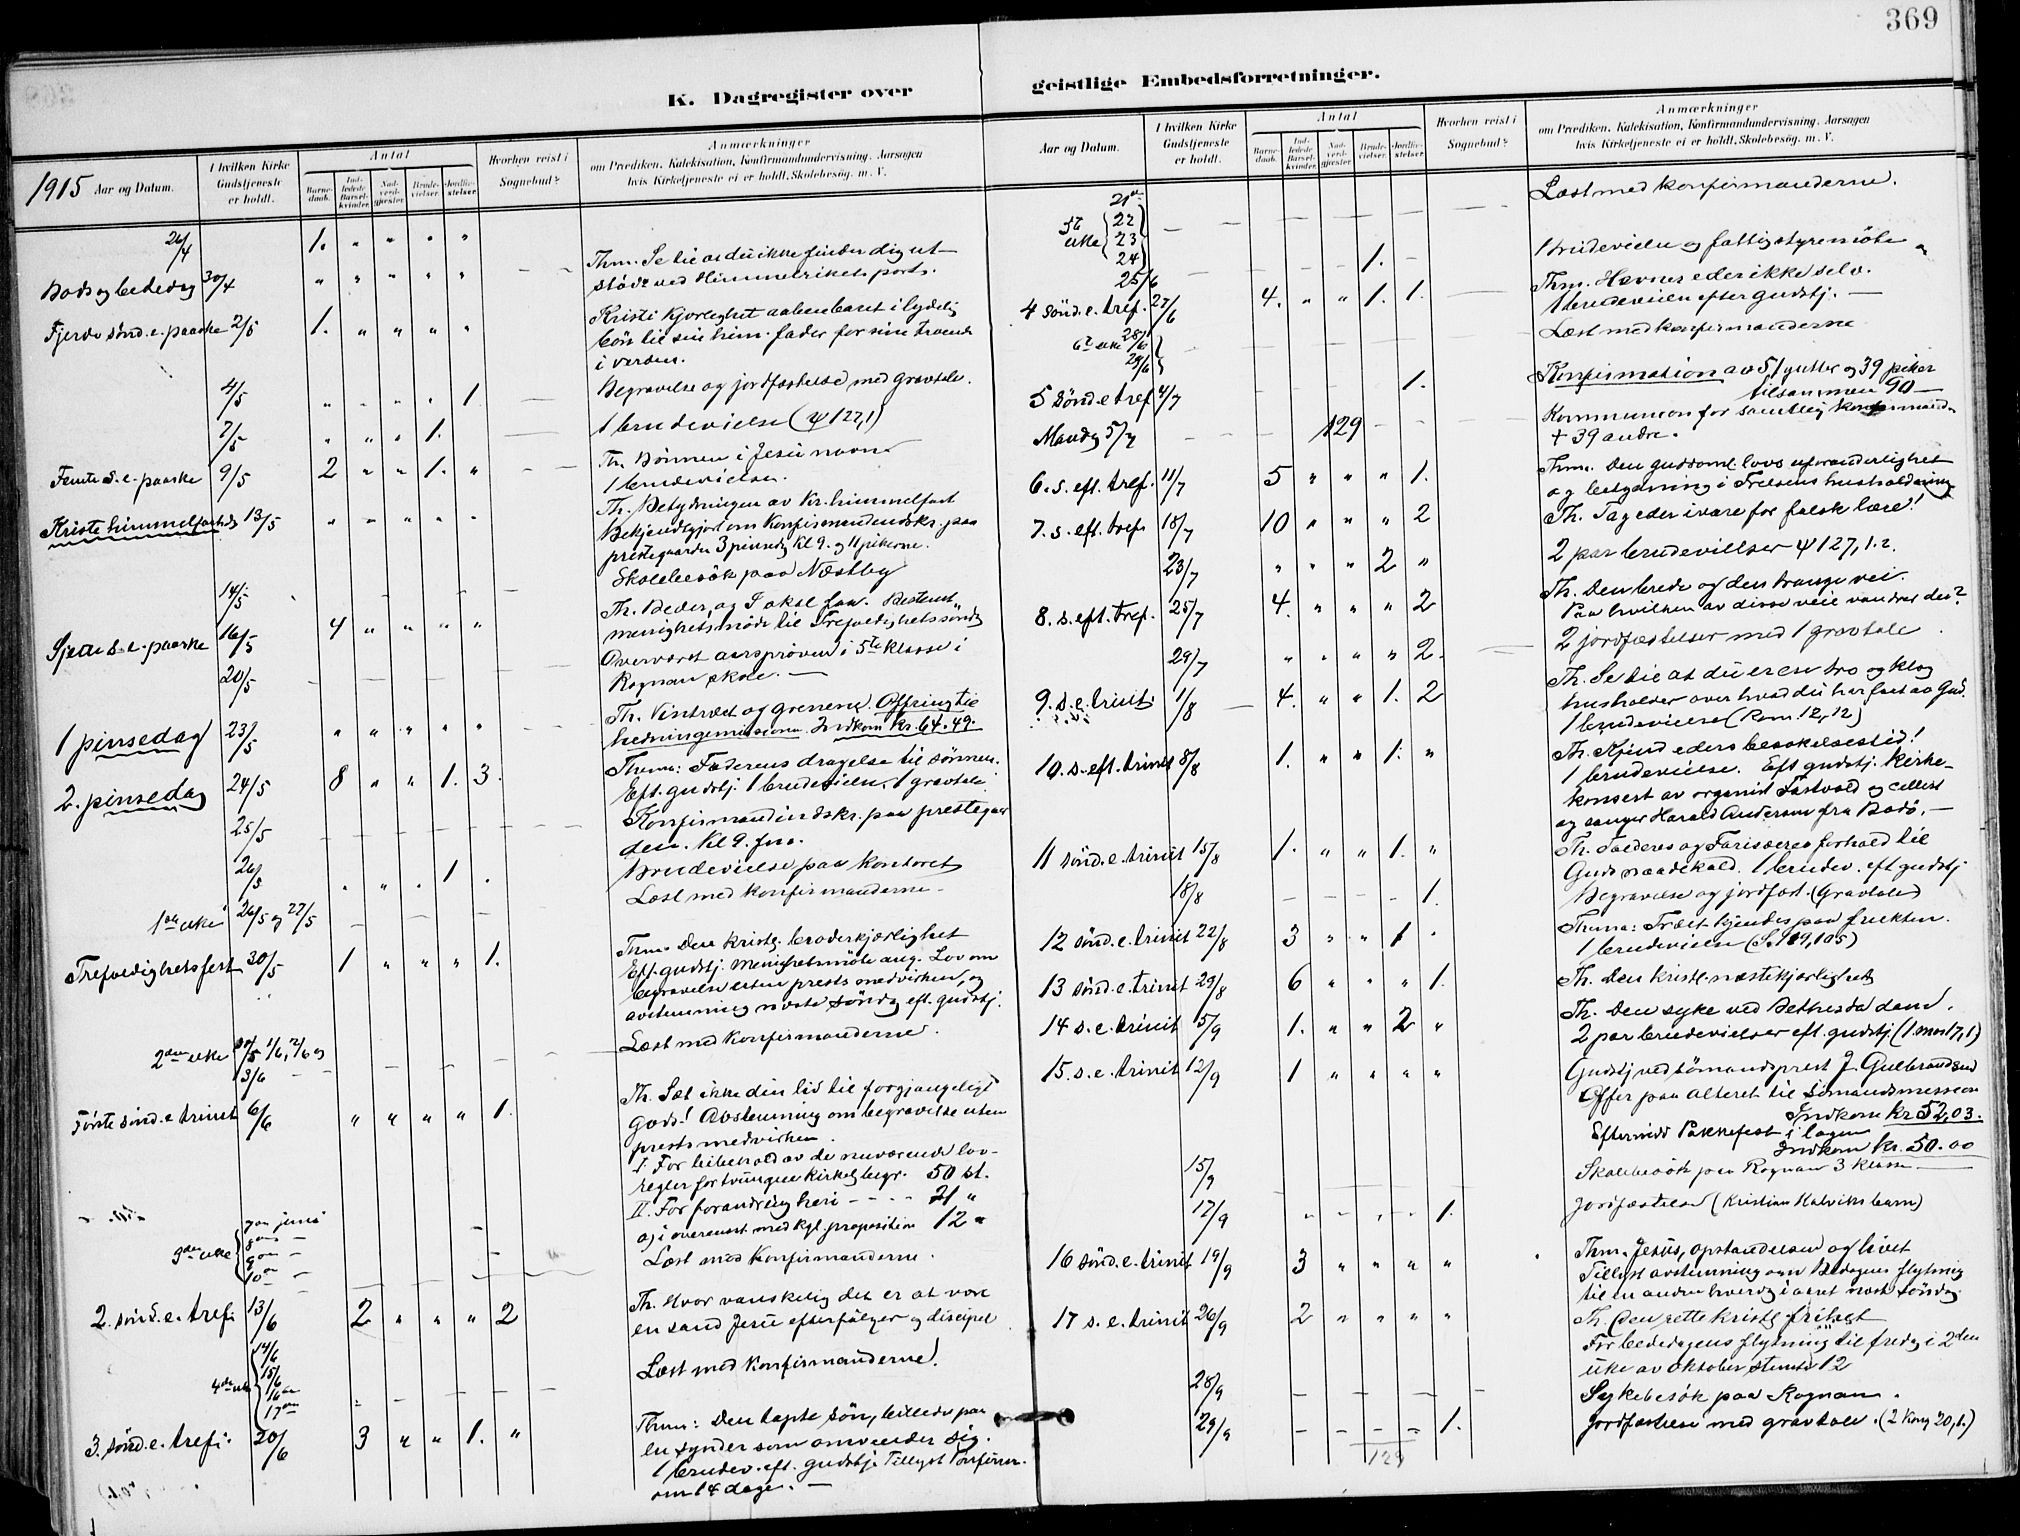 369
K. Dagregister over
geistlige Embedsforretninger.
1915 Aar og Datum.
I hvilken Kirke Gudstjeneste er holdt.
Antal
Barnedaab.
Indledede Barselkvinder.
Nadverdgjester.
Brudevielser.
Jordfæstelser.
Hvorhen reist i Sognebud?
Anmærkninger
om Prædiken, Katekisation, Konfirmandundervisning. Aarsagen
hvis Kirketjeneste ei er holdt. Skolebesög. m. V.
26/4 1. " " " "
Bods og bededag 30/4 " " " " " Thm. Se til at du ikke finder dig ut-
stödt ved Himmelrikets port.
Fjerde sönd. e. paaske 2/5 1. " " " " Kristi kjærlighet aabenbaret i lydelig
bön til sin him. fader for sine troende
i verden.
4/5 " " " " 1 Begravelse og jordfæstelse med gravtale.
7/5 " " " 1. 1 brudevielse (ψ 127,1)
Femte s. e. paaske 9/5 2 " " 1. " Th. Bönnen i Jesu navn
1 brudevielse.
Kriste himmelfartsdg 13/5 " " " " " Th. Betydningen av Kr. himmelfart
Bekjendtgjort om Konfirmandindskr. paa
prestegaarden 3 pinsedg kl 9. og 11 pikerne.
14/5 Skolebesök paa Næstby
Sjette s. e. paaske 16/5 4 " " " " Th. Beder, og I skal faa. Bestemt
menighetsmöde til Trefoldighetssöndg
20/5 Overværet aarsprøven i 5te klasse i
Rognan skole. —
1 pinsedag 23/5 " " " " " Th. Vintræet og grenene. Offring til
hedningemissionen Indkom kr. 64.49.
2. pinsedag 24/5 8 " " 1. 3. Thema: Faderens dragelse til sönnen.
Eft. gudstj. 1 brudevielse, 1 gravtale
25/5 Konfirmandindskr. paa prestegaar
den. Kl 9. fm.
26/5 . " . 1 . Brudevielse paa kontoret
1ste uke 26/5 og 27/5 Læst med Konfirmanderne.
Trefoldighetsfest 30/5 1 " " " 1. Thm. Den kristg. broderkjærlighet
Eft. gudstj. menighetsmöte ang. Lov om
begravelse uten prests medvirken, og
avstemning næste söndg eft. gudstj.
2den uke 1/6, 2/6 og 3/6 Læst med Konfirmanderne.
Förste sönd. e trinit 6/6 " " " " 1. Th. Sæt ikke din lid til forgjængeligt
gods! Avstemning om begravelse uten
prests medvirken.
I. For bibehold av de nuværende lov-
regler for tvungen kirkelg begr. 50 st.
II. For forandring heri - - - - 21 "
og i overenst. med kgl. proposition 12 "
3die uke 7de juni 8de 9de 10de Læst med Konfirmanderne.
2. sönd. e. tref. 13/6 2 " " " 2 Th. Hvor vanskelig det er at være
en sand Jesu efterfölger og discipel
4de uke 14/6 15/6 16de 17de Læst med Konfirmanderne.
3. sönd. e. tref. 20/6 3 " " 1. " Thm: Den tapte sön, billede paa
en synder som omvender sig.
1 brudev. eft. gudstj. Tillyst Konfirm.
om 14 dage. —
Aar og Datum.
I hvilken Kirke Gudstjeneste er holdt.
Antal
Barnedaab.
Indledede Barselkvinder.
Nadverdgjester.
Brudevielser.
Jordfæstelser.
Hvorhen reist i Sognebud?
Anmærkninger
om Prædiken, Katekisation, Konfirmandundervisning. Aarsagen
hvis Kirketjeneste ei er holdt. Skolebesög. m. V.
5te uke 21de 22 23 24 Læst med Konfirmanderne.
25/6 1. 1 brudevielse og fattigstyremöte
4 sönd. e. tref. 27/6 4. " " 1. 1. Thm. Hevner eder ikke selv.
1 brudevielse efter gudstj. —
6te uke 28/6 29/6 Læst med konfirmanderne
5 sönd e tref 4/7 1. Konfirmation av 51 gutter og 39 piker
tilsammen 90 —
Mandg 5/7 129 Kommunion for samtlig konfirmand.
+ 39 andre.
6. s. eft. tref. 11/7 5 " " " 1. Thm. Den guddoml. lovs uforanderlighet
og betydning i Frelsens husholdning
7. s. eft. tref. 18/7 10 " " " 2 Th. Tag eder ivare for falsk lære!
23/7 " " " 2 " 2 par brudevielser ψ 127,1.2.
8. s. eft. tref. 25/7 4. " " " 2 Th. Den brede og den trange vei.
Paa hvilken av disse veie vandrer du?
29/7 " " " " 2. 2 jordfæstelser med 1 gravtale
9. s. e. trinit. 1/8 4. " " 1. 2 Th. Se til at du er en tro og klog
husholder over hvad du har faat av Gud.
1 brudevielse (Rom. 12,12)
10. s. eft. trinit 8/8 1. " " 1. " Th. Kjend eders besøkelsestid!
1 brudevielse. Eft gudstj. kirke-
konsert av organist Fastvold og cellist
og sanger Harald Andersen fra Bodö. —
11 sönd. e. trinit 15/8 1. " " 1. " Th. Tolderes og Farisæeres forhold til
Guds naadekald. 1 brudev. eft gudstj
18/8 1. Begravelse og jordfæst. (Gravtale)
12 sönd. e. trinit 22/8 3 " " 1 " Thema: Træet kjendes paa frukten.
1 brudevielse (S. 119,105)
13 sönd. e. trinit 29/8 6 " " " 1. Th. Den kristl. næstekjærlighet
14 s. e. trinit 5/9 1. " " 2 " Th. Den syke ved Bethesda dam.
2 par brudevielser eft. gudstj. (1 mos 17,1)
15. s. e. trinit 12/9 1 " " " " Gudstj ved sömandsprest J. Gulbrandsen
Offer paa alteret til Sömandsmission
Indkom kr 52,03.
Eftermidd Pakkefest i lagen
Indkom kr. 50.00
15/9 Skolebesök paa Rognan 3 klasse
17/9 1. Jordfæstelse (Kristian Halviks barn)
16 sönd. e. trinit 19/9 3 " " " " Thm. Jesus, opstandelsen og livet
Tillyst avstemning om Bededagens flytning
til en anden hverdg i aaret næst söndag.
17 s. e. trinit 26/9 2 " " " " Th. Den rette kristlg frihet
For bededagens flytning til fredg i 2den
uke av oktober stemte 12
28/9 Sykebesök paa Rognan.
29/9 1. Jordfæstelse med gravtale. (2 Kong 20,1.)
129